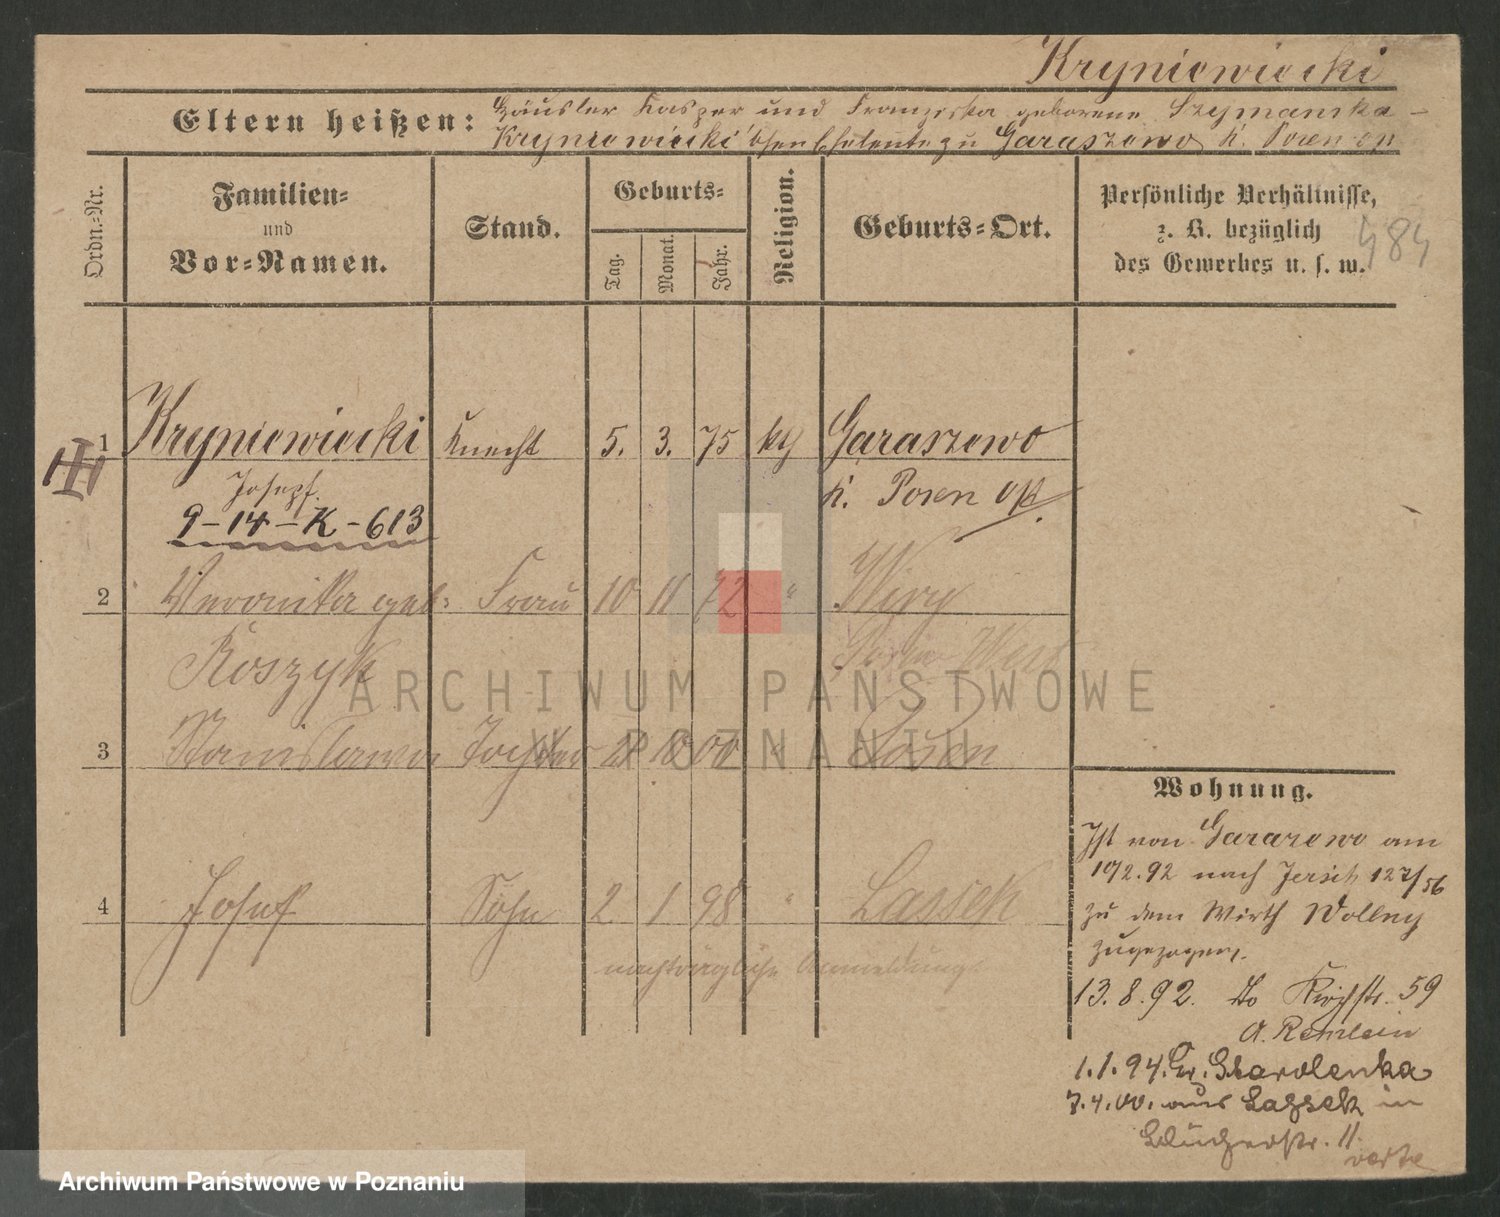 Kryniewiecki
Eltern heißen: Häusler Kasper und Franziska geborene Szymanska-
Kryniewiecki'schen Eheleute zu Garaszewo K. Posen Ost
Ordn.-Nr.
Familien-
und
Vor-Namen.
Stand.
Geburts-
Tag.
Monat.
Jahr.
Religion.
Geburts-Ort.
Persönliche Verhältnisse,
z. B. bezüglich
des Gewerbes u. s. w.
484
1 Kryniewiecki Knecht 5. 3. 75 kth Garaszewo
Josepf. K. Posen Ost
9-14-K-613
2 Veronika geb: Frau 10 11 72 " Wiry
Roszyk Posen West
3 Stanislawa Tochter 00 " Posen
4 Josef Sohn 2. 1 98 " Lassek
nachträgliche Anmeldung.
Wohnung.
Ist von Garaszewo am
1 92.92 nach Jersitz 127/56
zu dem Wirth Wollny
zugezogen.
13.8.92. Do Kirchstr. 59
A. Remlein
1.1.94. Gr. Starolenka
7.4.00. aus Lassek in
Blücherstr. 11.
verte
ARCHIWUM PAŃSTWOWE
W POZNANIU
Archiwum Państwowe w Poznaniu